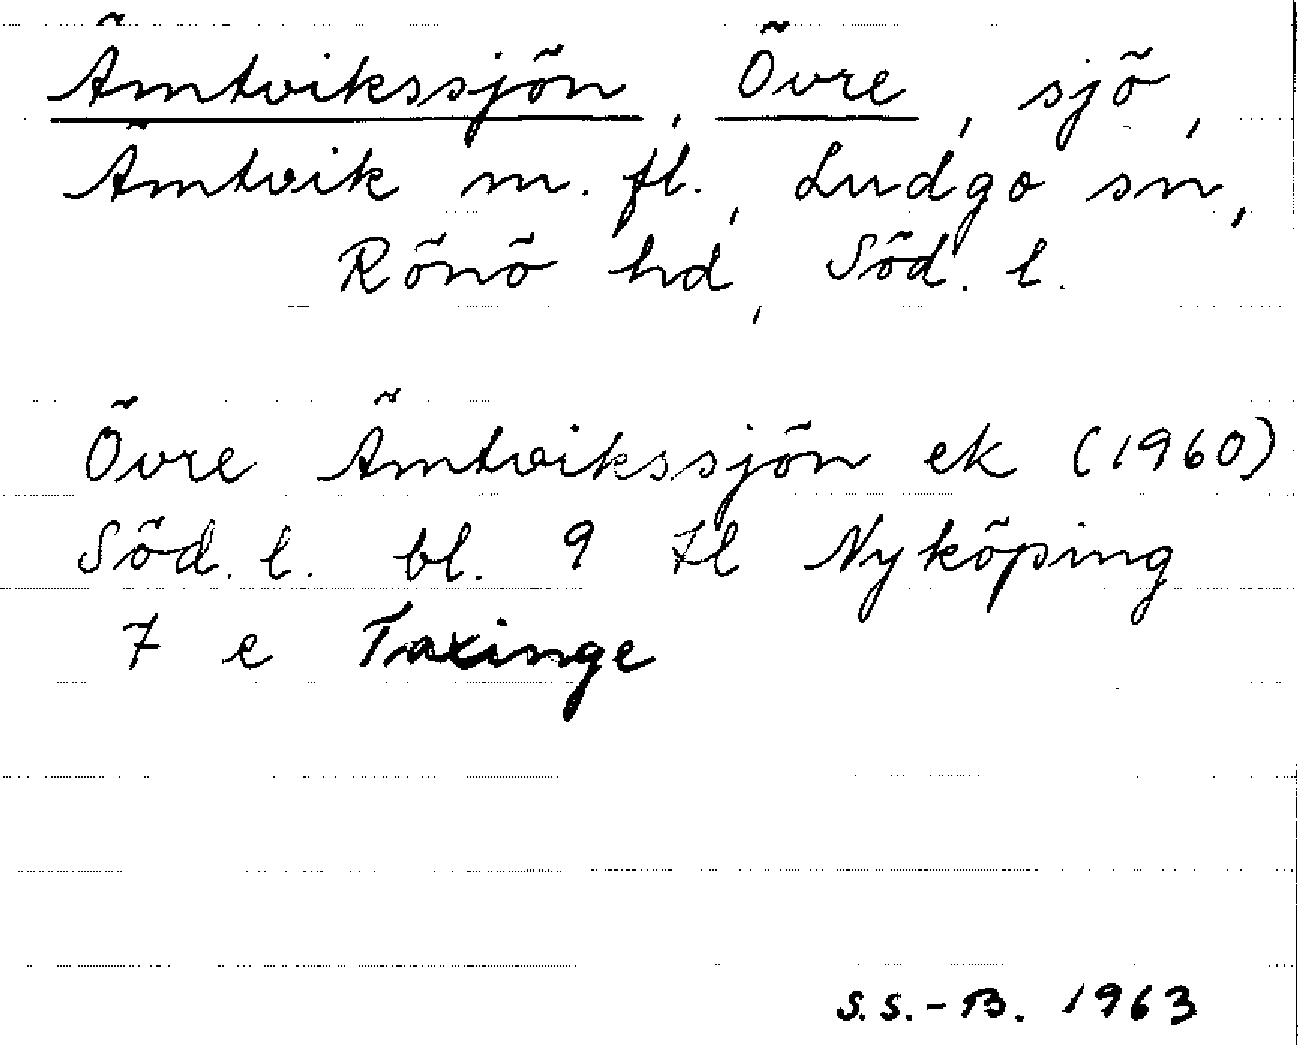 Ämtvikssjön, Övre, sjö,
Ämtvik m. fl., Ludgo sn,
Rönö hd, Söd. l.
Övre Ämtvikssjön ek (1960)
Söd. l. bl. 9 tl Nyköping
7 e Taxinge
S.S.-B. 1963